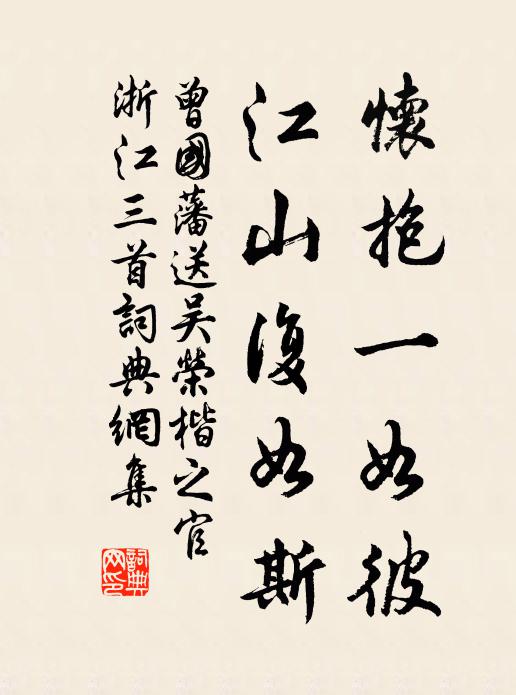 懷抱一如彼
江山復如斯
曾國藩送吴榮楷之官
浙江三首詞典網集
詞典网印